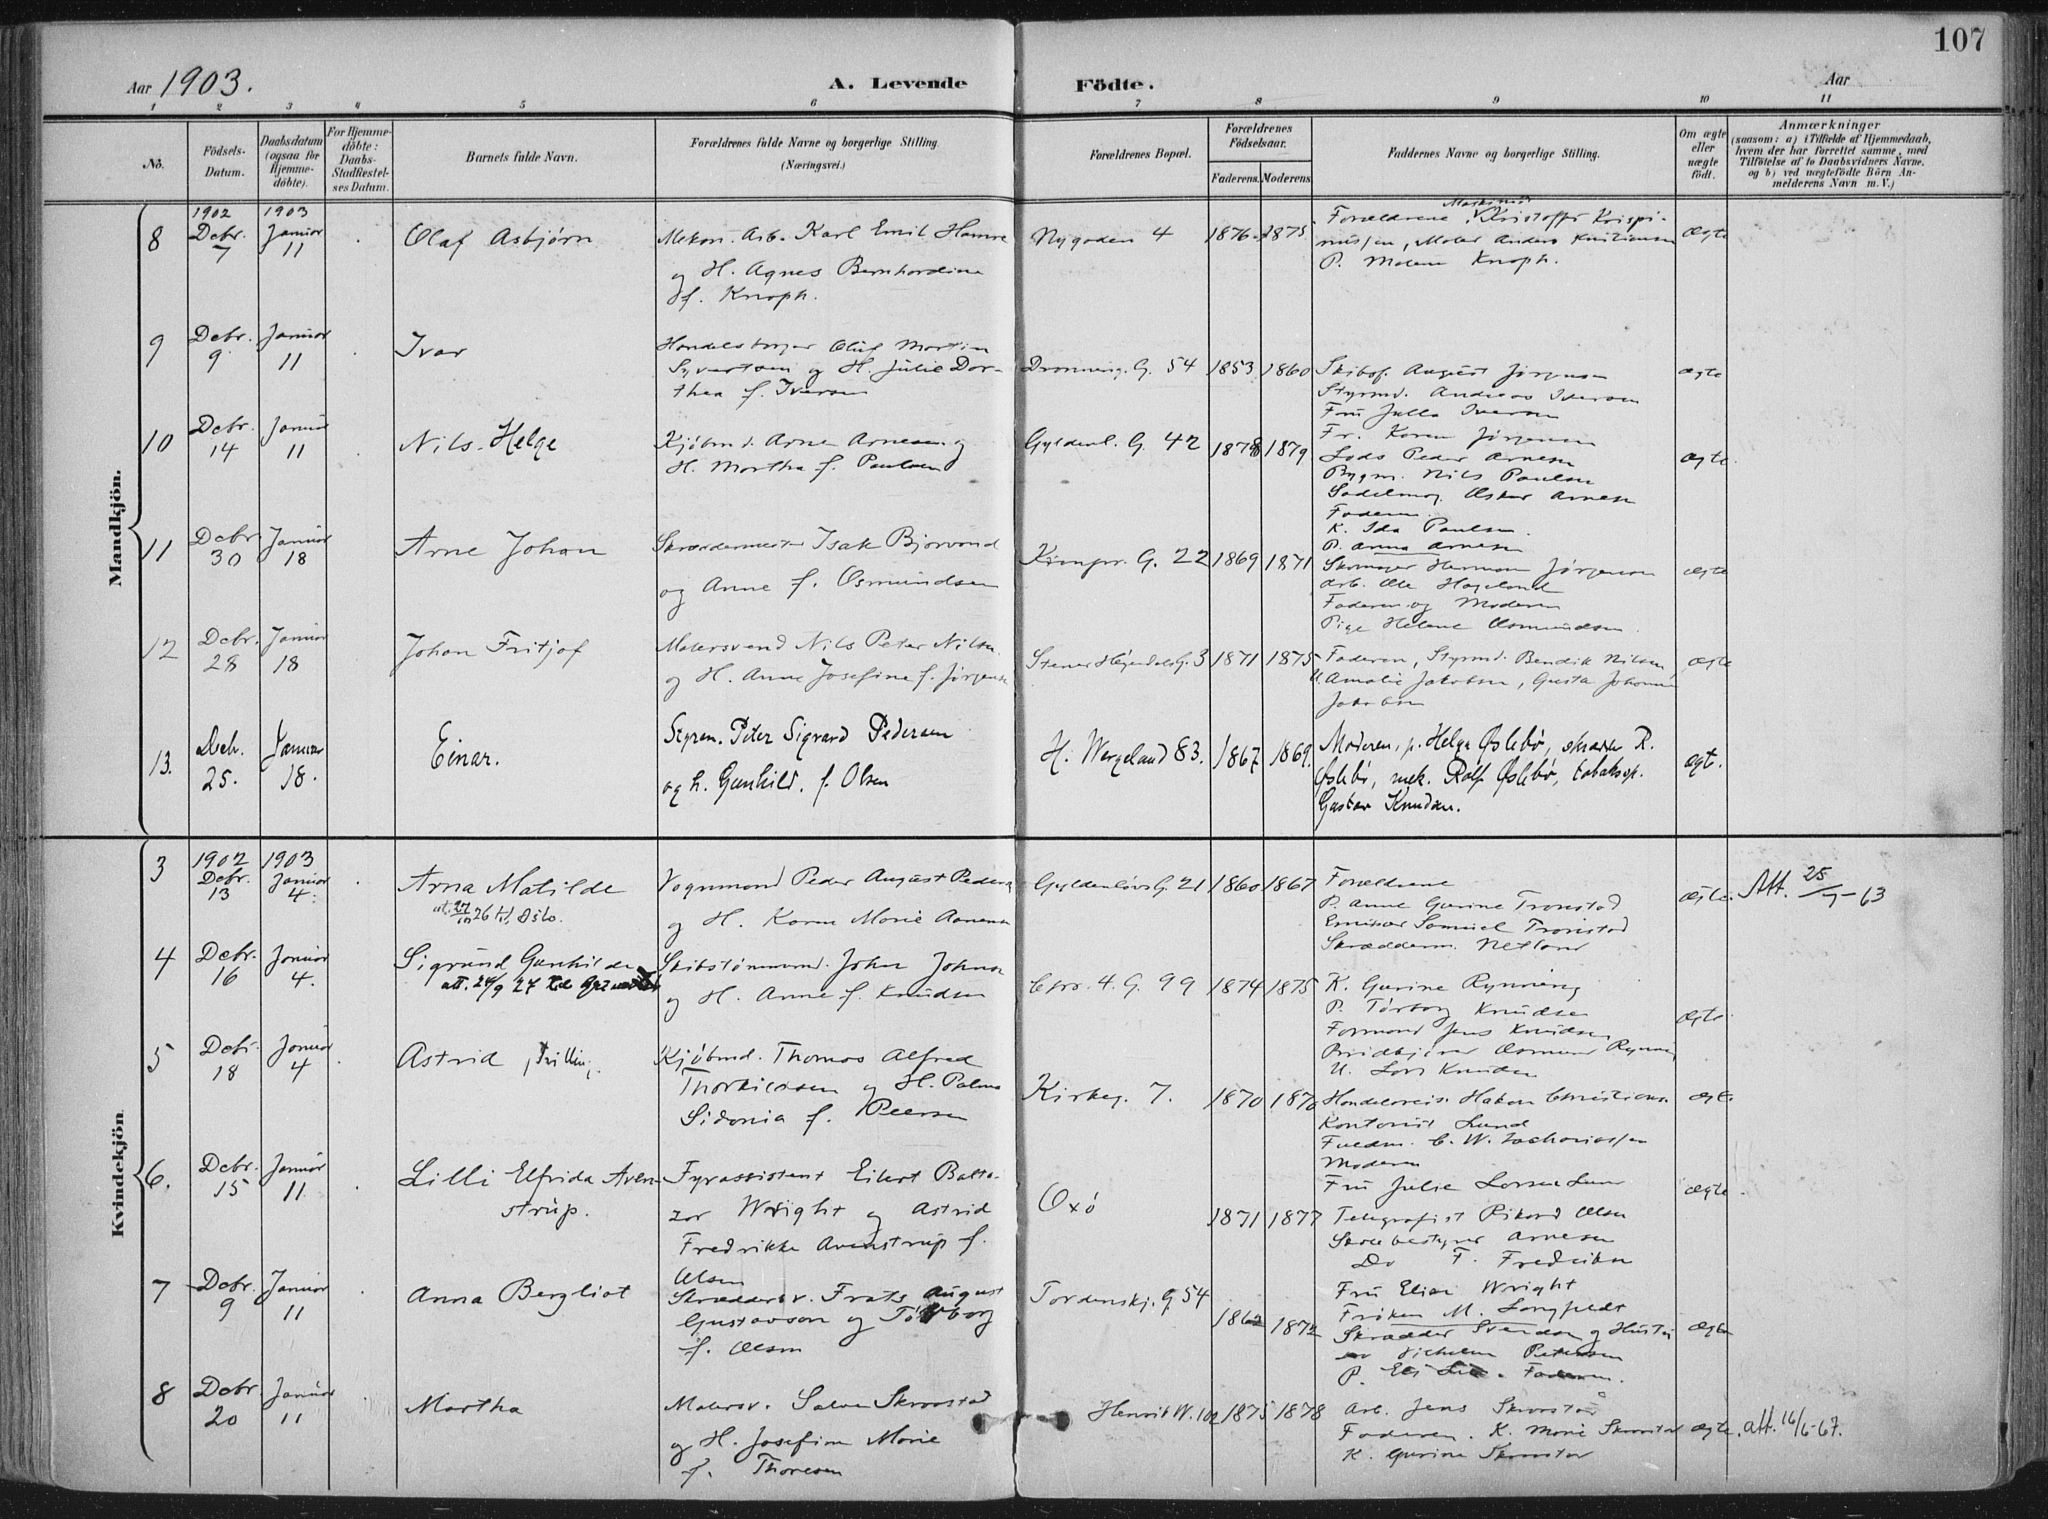 107
Aar 1903.
A. Levende
Födte.
Aar
1 2 3 4 5 6 7 8 9 10 11
No.
Födsels-
Datum.
Daabsdatum
(ogsaa for
Hjemme-
döbte).
For Hjemme-
döbte:
Daabs-
Stadfæstel-
ses Datum.
Barnets fulde Navn.
Forældrenes fulde Navne og borgerlige Stilling.
(Næringsvei.)
Forældrenes Bopæl.
Forældrenes
Födselsaar.
Faderens. Moderens.
Faddernes Navne og borgerlige Stilling.
Om ægte
eller
uægte
födt.
Anmærkninger
(saasom: a) i Tilfælde af Hjemmedaab,
hvem der har forrettet samme, med
Tilföielse af to Daabsvidners Navne.
og b) ved uægtefödte Börn An-
melderens Navn m. V.)
Mandkjön.
8
1902
Debr.
7
1903
Januar
11
Olaf Asbjørn
Mekan. Arb. Karl Emil Hamre
og H. Agnes Bernhardine
f. Knoph.
Nygaden 4
1876 1875
Forældrene, Maskinist Kristoffer Krispi-
nussen, Maler Anders Kristiansen
P. Malene Knoph.
ægte
9
Debr.
9
Januar
11
Ivar
Handelsborger Oluf Martin
Syvertsen og H. Julie Dor-
thea f. Iversen
Dronning. G. 54
1853 1860
Skibsf. August Jørgensen
Styrmd. Andreas Iversen
Fru Julla Iversen
Fr. Karen Jørgensen
ægte
10
Debr.
14
Januar
11
Nils Helge
Kjøbmd. Arne Arnesen og
H. Martha f. Paulsen
Gyldenl. G. 42
1878 1879
Lods Peder Arnesen
Bygm. Nils Paulsen
Sadelmag. Oskar Arnesen
Faderen
K. Ida Paulsen
P. Anna Arnesen
ægte
11
Debr.
30
Januar
18
Arne Johan
Skræddermester Isak Bjorvand
og Anne f. Osmundsen
Kronpr. G. 22
1869 1871
Skomager Herman Jørgensen
Arb. Ole Hageland
Faderen og Moderen
Pige Helene Osmundsen
ægte
12
Debr.
28
Januar
18
Johan Fritjof
Malersvend Nils Peter Nilsen
og H. Anne Josefine f. Jørgensen
Stener Heyerdalsg. 3
1871 1875
Faderen, Styrmd. Bendik Nilsen
U. Amalie Jakobsen, Gusta Johanne
Jakobsen
ægte
13.
Decb.
25.
Januar
18.
Einar.
Styrm. Peter Sigvard Pedersen
og h. Gunhild, f. Olsen
H. Wergeland 83.
1867 1869.
Moderen, p. Helga Øslebø, skræder R.
Øslebø, mek. Rolf Øslebø, tobaksp.
Gustav Knudsen.
ægt.
Kvindekjön
3
1902
Debr.
13
1903
Januar
4.
Arna Matilde
att. 27/10 26 til Oslo.
Vognmand Peder August Pedersen
og H. Karen Marie Aanensen
Gyldenløvs G. 21
1860 1867
Forældrene
P. Anne Gurine Tronstad
Emissær Samuel Tronstad
Skrædderm. Netland
ægte.
Att. 25/7-63
4
Debr.
16
Januar
4.
Sigrund Gunhilde
att. 24/9 27
Skibstømmermd. John Johnsen
og H. Anne f. Knudsen
Chr. 4. G. 99
1874 1875
K. Gurine Rynning
P. Torborg Knudsen
Formand Jens Knudsen
Osmund Rynning
U. Lars Knudsen
ægte
5
Debr.
18
Januar
4
Astrid, tvilling.
Kjøbmd. Thomas Alfred
Thorkildsen og H. Palma
Sidonia f. Peersen
Kirkeg. 7.
1870 1870
Handelsreis. Hakon Christiansen
Kontorist Lund
Fuldm. C. W. Zachariassen
Moderen
Fru Julie Larsen Lund
ægte
6.
Debr.
15
Januar
11
Lilli Elfrida Aven-
strup.
Fyrassistent Eilert Balta-
zar Wright og Astrid
Fredrikke Avenstrup f.
Olsen
Oxø
1871 1877
Telegrafist Rikard Olsen
Skolebestyrer Arnesen
Do F. Fredriksen
Fru Elise Wright
Frøken M. Langfeldt
ægte
7
Debr.
9
Januar
11
Anna Bergliot
Skræddersv. Frats August
Gustavson og Torborg
f. Olsen
Tordenskj. G 54
1862 1872
Skrædder Svendsen og Hustru
Vilhelm Petersen
P. Eli Lie. Faderen.
ægte
8
Debr.
20
Januar
11
Martha
Malersv. Salve Skrostad
og H. Josefine Marie
f. Thoresen
Henrik W. 102
1875 1878
Arb. Jens Skrostad
Faderen. K. Marie Skrostad
K. Gurine Skrostad
ægte.
att. 16/6-67.